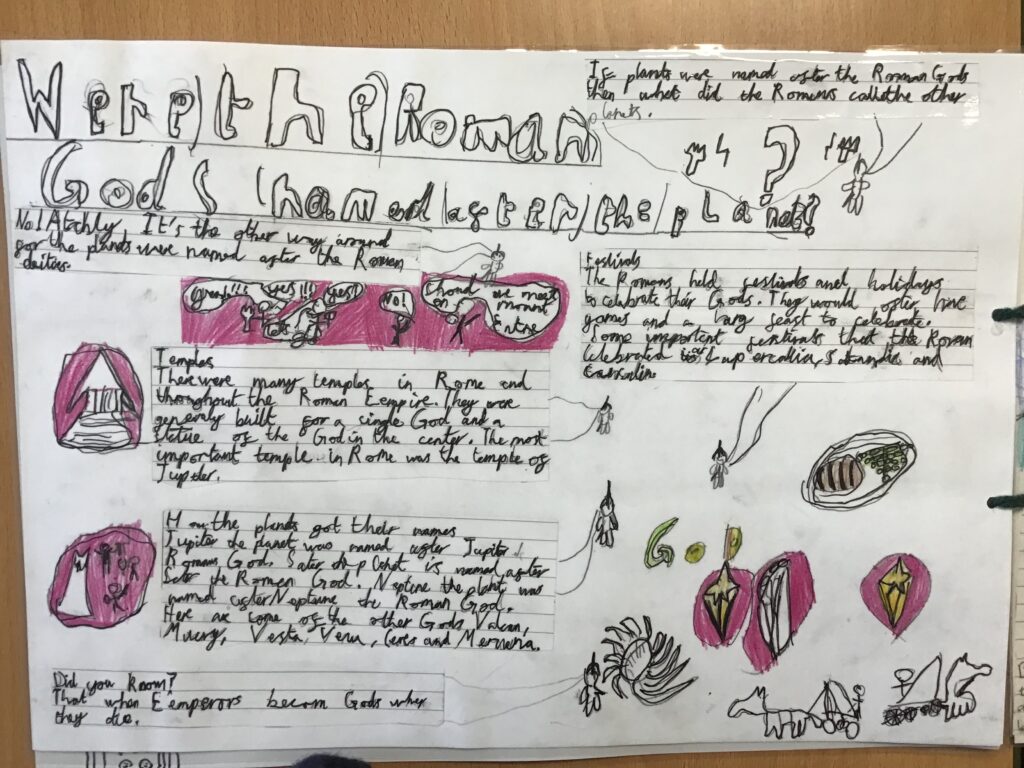 Were the Roman
Gods named after the planets?
If plants were named after the Roman Gods
then what did the Romans call the other
planets.
?
No! It's the other way around
for the plants were named after the Roman
deities.
yes!!! yes!
No!
we meet
mount
Entne
Temples
There were many temples in Rome and
throughout the Roman Eempire. They were
built for a single God and a
statue of the God in the center. The most
important temple in Rome was the temple of
Jupiter.
Festivals
The Romans held festivals and holidays
to celebrate their Gods. They would often have
games and a feast to celebrate.
Some important festivals that the Roman
celebrated and
How the plants got their names
Jupiter the planet was named after Jupiter
Romans God. is named after
the Roman God. Neptune the plant was
named after Neptune the Roman God.
Here are some of the other Gods Vulcan,
Vesta, Ceres and
Did you
That when Eemperors becom Gods when
they die.